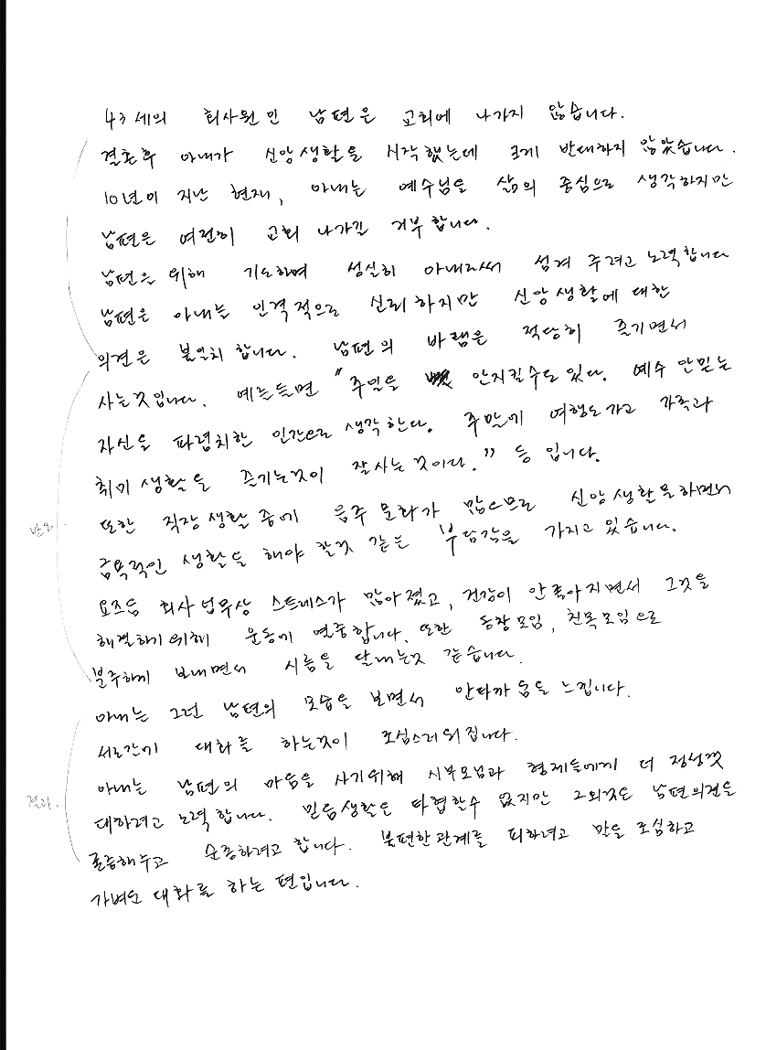 43세의 회사원인 남편은 교회에 나가지 않습니다.
결혼후 아내가 신앙생활을 시작했는데 크게 반대하지 않았습니다.
10년이 지난 현재, 아내는 예수님을 삶의 중심으로 생각하지만
남편은 여전히 교회 나가길 거부합니다.
남편을 위해 기도하며 성실히 아내로써 섬겨 주려고 노력합니다
남편은 아내를 인격적으로 신뢰하지만 신앙생활에 대한
의견은 불일치 합니다. 남편의 바램은 적당히 즐기면서
사는것입니다. 예를들면 "주일을 안지킬수도 있다. 예수 안믿는
자신을 파렴치한 인간으로 생각한다. 주말에 여행도 가고 가족과
취미 생활을 즐기는것이 잘사는 것이다." 등 입니다.
또한 직장 생활 중에 음주 문화가 많으므로 신앙 생활을하면서
금욕적인 생활을 해야 할것 같은 부담감을 가지고 있습니다.
요즈음 회사 업무상 스트레스가 많아졌고, 건강이 안좋아지면서 그것을
해결하기위해 운동에 열중합니다. 또한 동창모임, 친목모임으로
분주하게 보내면서 시름을 달래는것 같습니다.
아내는 그런 남편의 모습을 보면서 안타까움을 느낍니다.
서로간에 대화를 하는것이 조심스러워집니다.
아내는 남편의 마음을 사기위해 시부모님과 형제들에게 더 정성껏
대하려고 노력합니다. 믿음생활은 타협할수 없지만 그외것은 남편의견을
존중해주고 순종하려고 합니다. 불편한 관계를 피하려고 말을 조심하고
가벼운 대화를 하는 편입니다.
반응
결과.